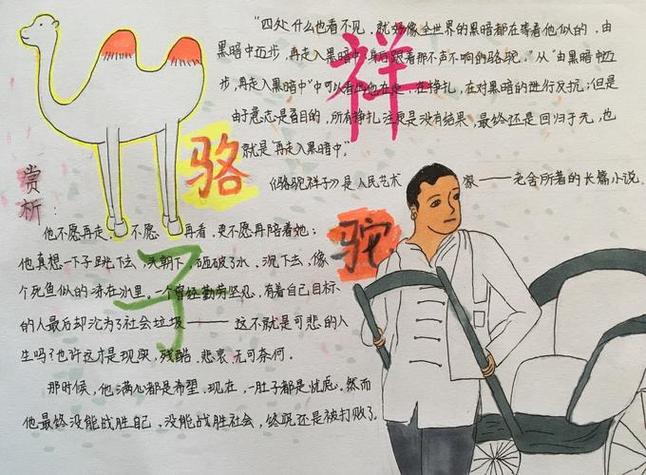 "四处什么也看不见，就好像全世界的黑暗都在等着他似的，由
黑暗中迈步，再走入黑暗中，身后跟着那不声不响的骆驼。"从"由黑暗中迈
步，再走入黑暗中"中可以看出他在走，在挣扎，在对黑暗的进行反抗；但是
由于意志是盲目的，所有挣扎注定是没有结果，最终还是回归于无，也
就是"再走入黑暗中。"
《骆驼祥子》是人民艺术家——老舍所著的长篇小说。
骆
驼
祥
子
赏析：
他不愿再走，不愿再看，更不愿再陪着她；
他真想一下子跳下去，头朝下，砸破了冰，沉下去，像
个死鱼似的冻在冰里。一个曾经勤劳坚忍，有着自己目标
的人最后却沦为了社会垃圾——这不就是可悲的人
生吗？也许这才是现实，残酷，悲哀，无可奈何。
那时候，他满心都是希望，现在，一肚子都是忧虑。然而
他最终没能战胜自己，没能战胜社会，终究还是被打败了。